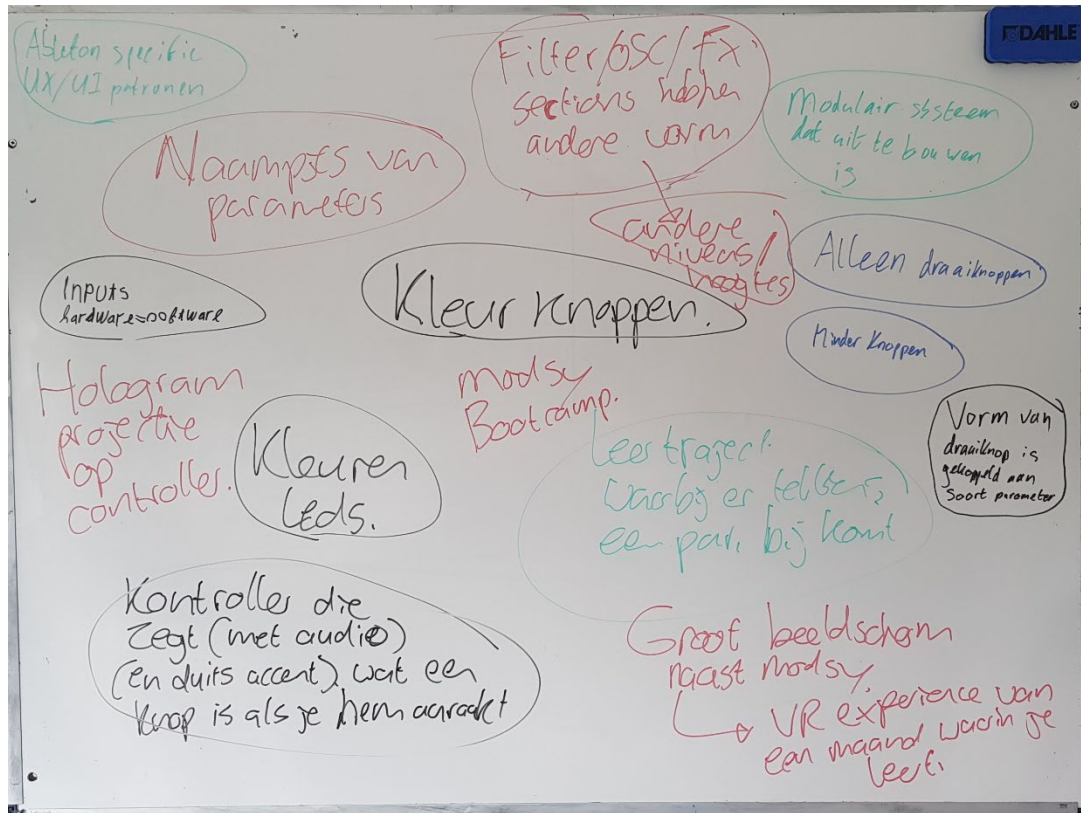 Ableton specific
UX/UI patronen
Filter/OSC/FX
sections hebben
andere vorm
DAHLE
Modulair systeem
dat uit te bouwen
is
Naampjes van
parameters
andere
niveaus/
hoogtes
Alleen draaiknoppen
Inputs
hardware=software
Kleur Knoppen.
Minder Knoppen
Hologram
projectie
op
controller.
modsy
Bootcamp.
Kleuren
Leds.
Leertraject
waarbij er telkens
een par. bij komt
Vorm van
draaiknop is
gekoppeld aan
Soort parameter
Kontroller die
zegt (met audio)
(en duits accent) wat een
Knop is als je hem aanraakt
Groot beeldscherm
naast modsy
VR experience van
een maand waarin je
leert.